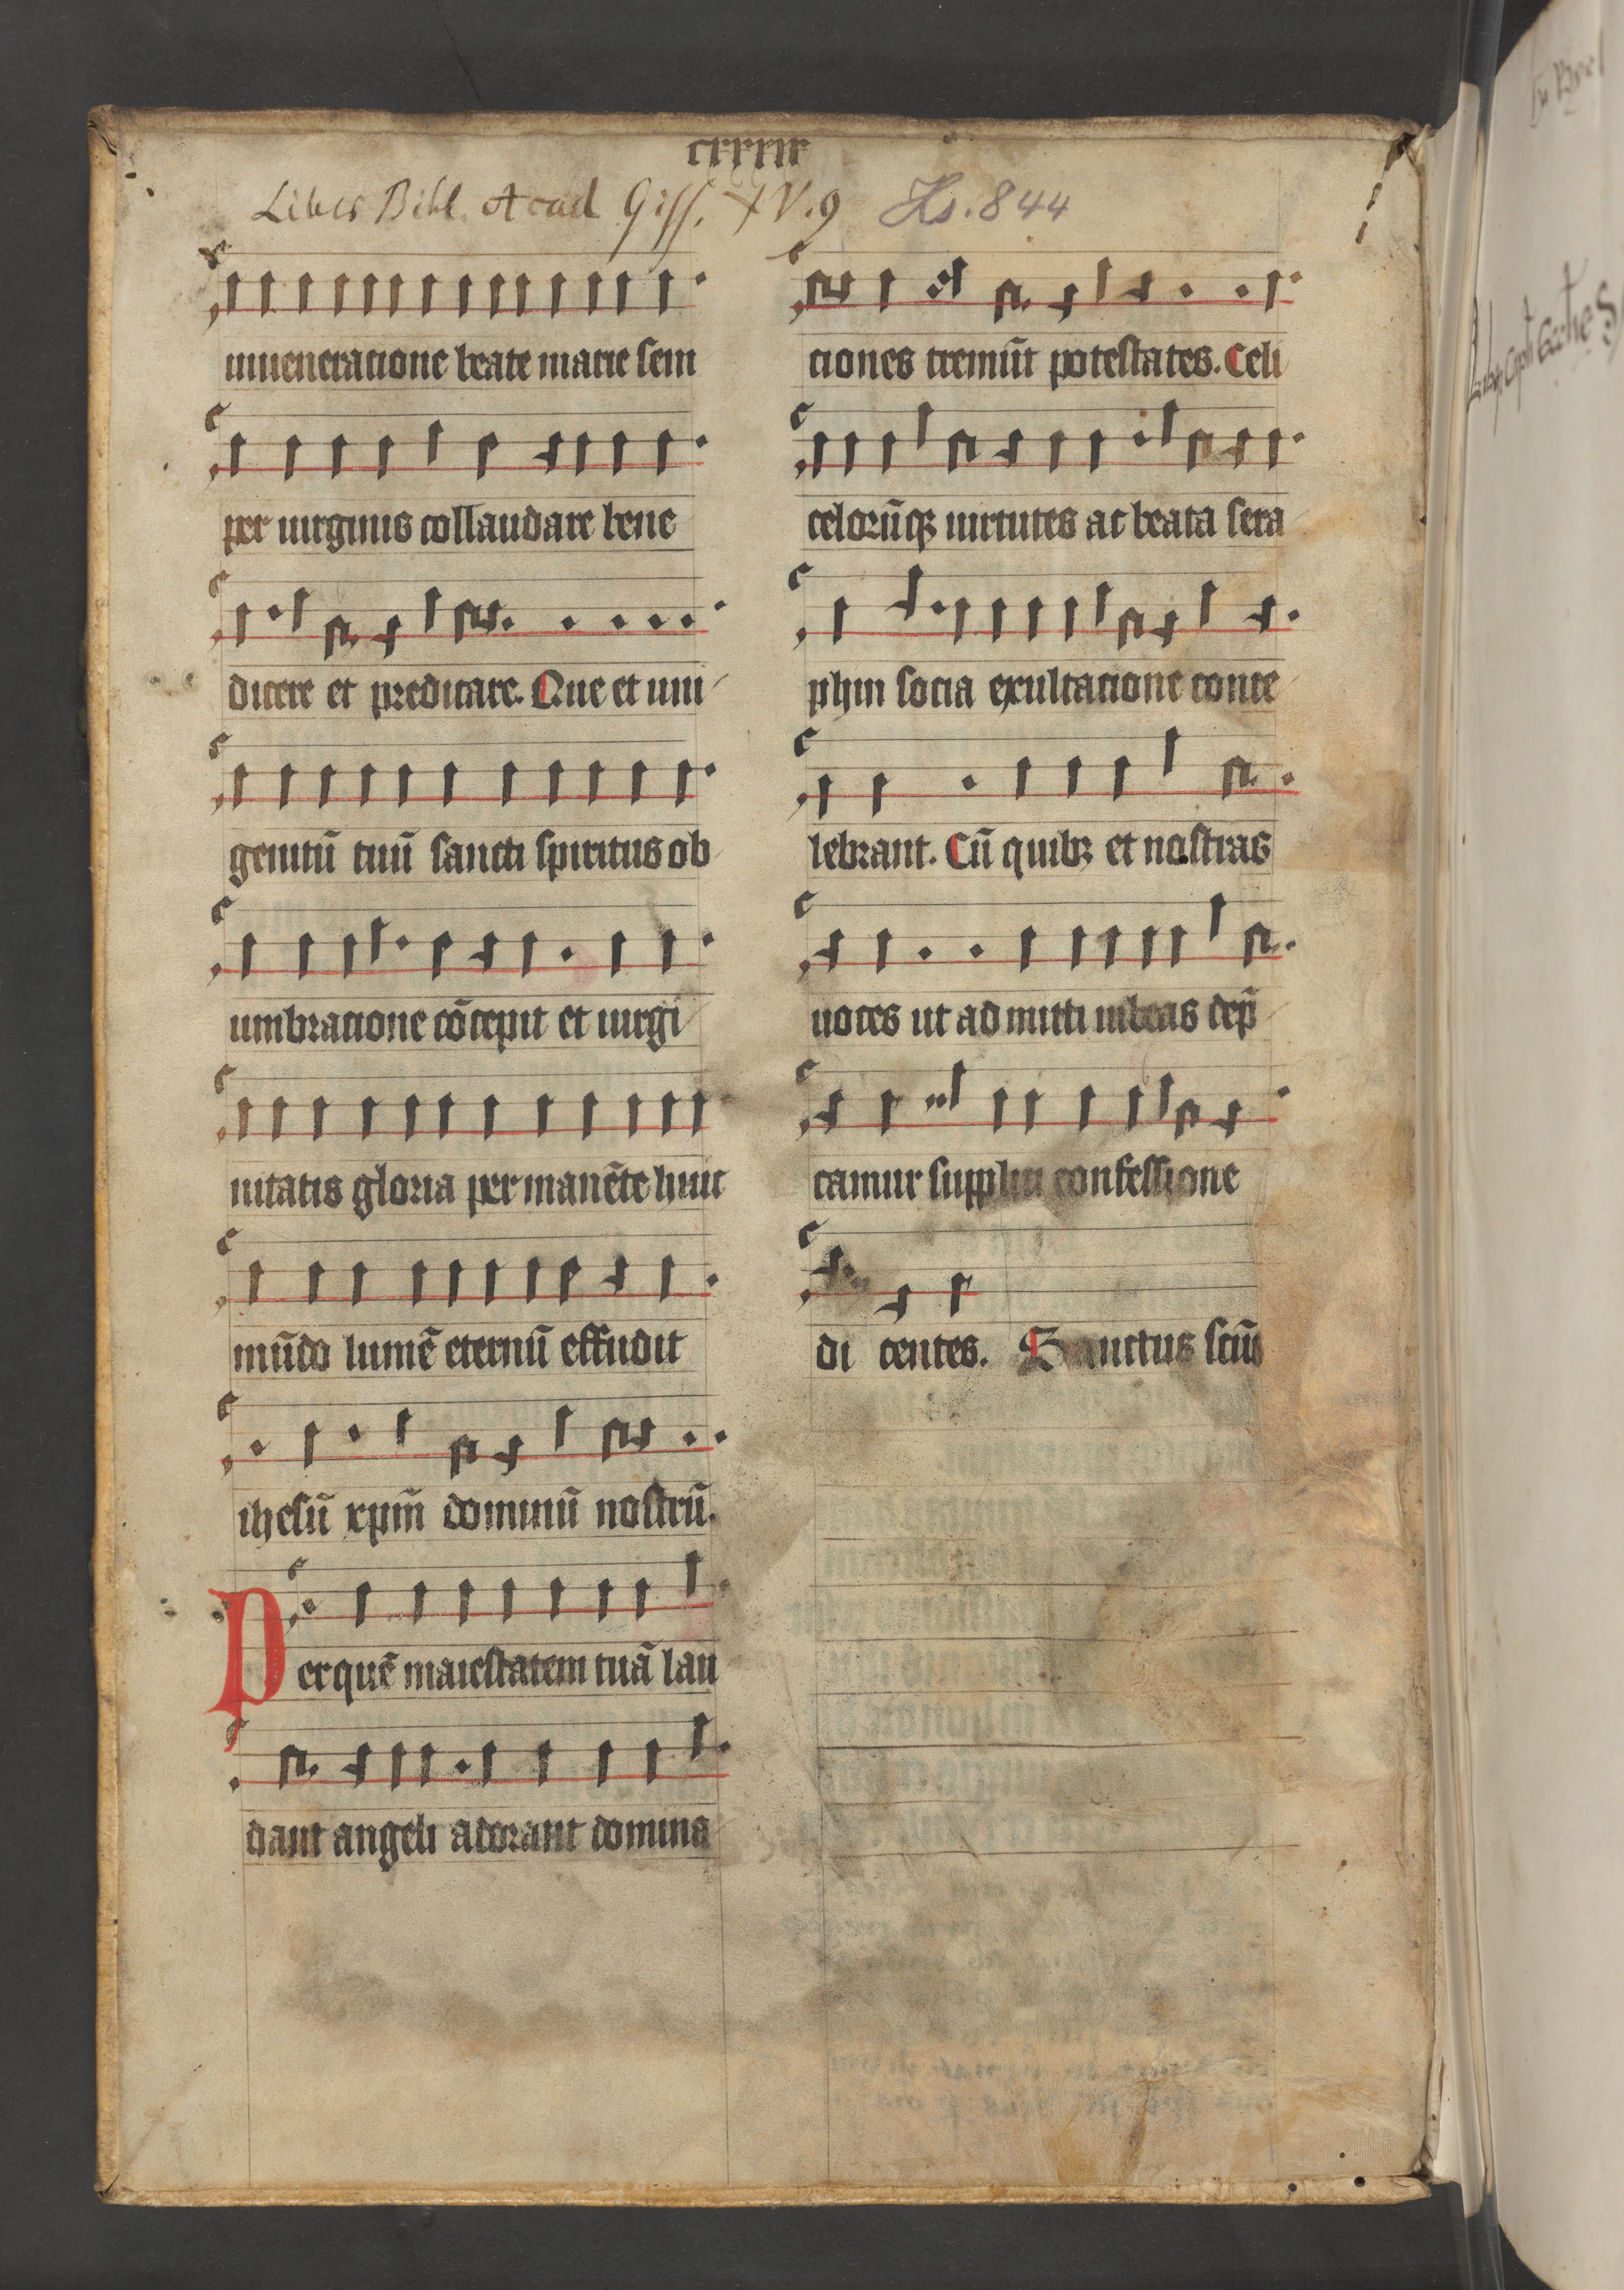 cxxxix
Liber Bibl. Acad Giss. XV.9 Hs. 844
inueneratione beate marie sem
per uirginis collaudare bene
dicere et predicare. Que et uni
genitū tuū sancti spiritus ob
umbratione cōcepit et uirgi
nitatis gloria permanēte huic
mūdo lumē eternū effudit
ihesū xp̄m dominū nostrū.
Perquē maiestatem tuā lau
dant angeli adorant domina
ciones tremūt potestates. Celi
celorūqꝫ uirtutes ac beata sera
phin socia exultatione conce
lebrant. Cū quibꝫ et nostras
uoces ut admitti iubeas dep̄
camur supplici confessione
di centes. Sanctus scūs